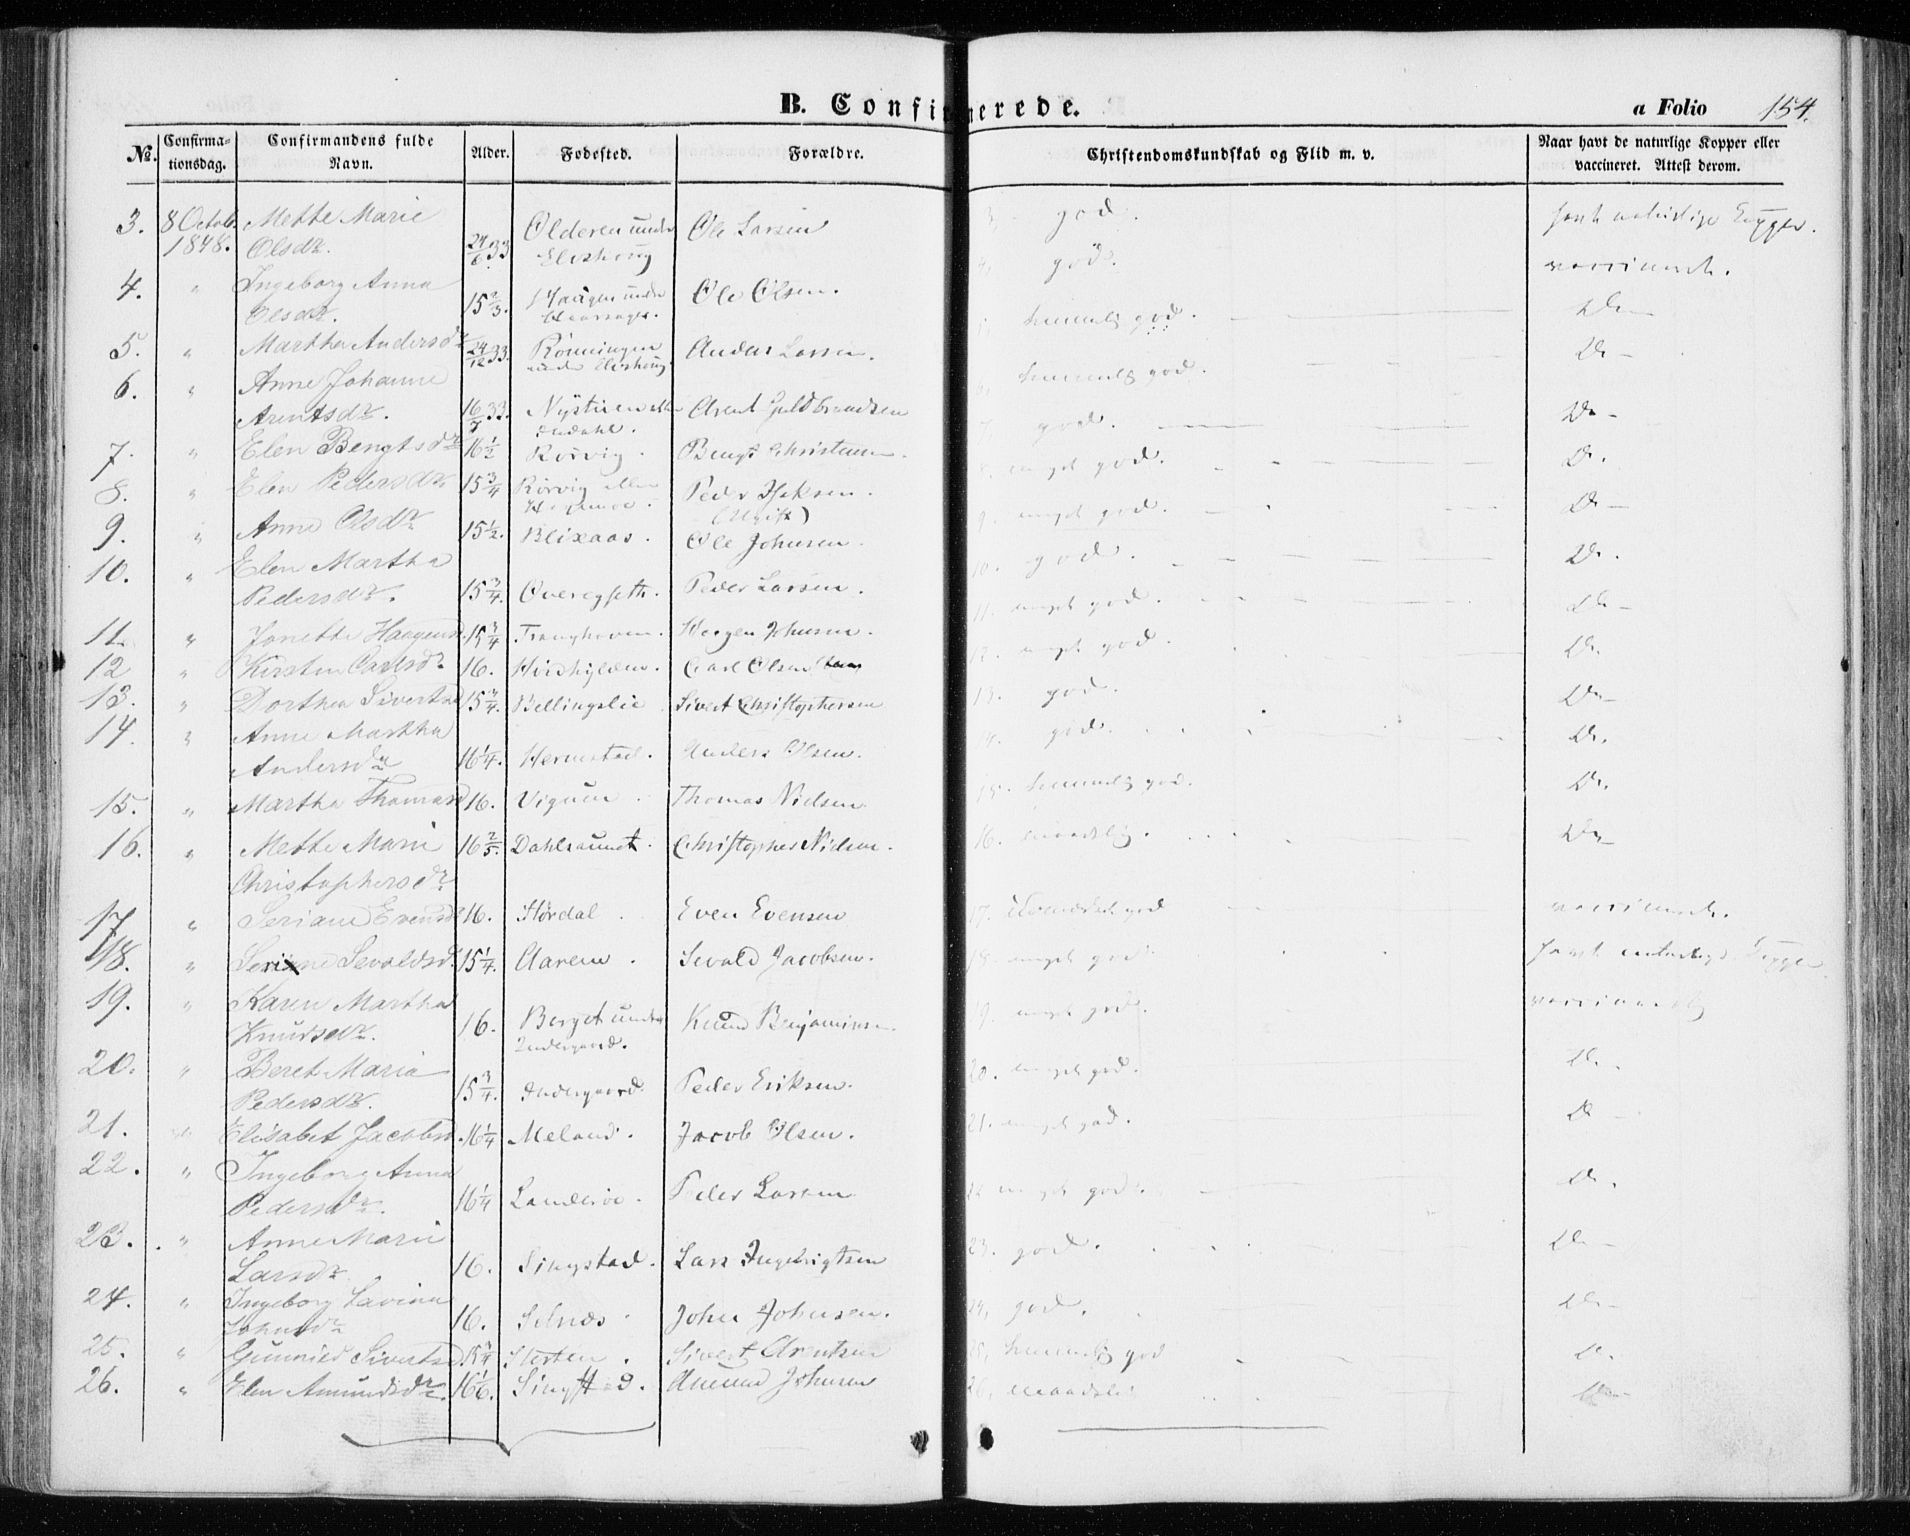 B. Confirmerede.
a Folio 154.
No. Confirmationsdag. Confirmandens fulde Navn. Alder. Fødested. Forældre. Christendomskundskab og Flid m. v. Naar havt de naturlige Kopper eller vaccineret. Attest derom.
3. 8 Octob. Mette Marie Olderen under Ole Larsen god. havt naturlige Kopper.
1848. Olsdr. 24/6 33 Elshoug
4. " Ingeborg Anna god. vaccineret.
Olsdr. 15 2/3. Haugen under Ole Olsen.
5. " Martha Andersdr 24/12 33. Rönningen Anders Larsen. temmelig god. Do
under Elshoug
6. " Anne Johanne temmelig god. Do
Arentsdr. 16/7 33. Arent Guldbrandsen
7. " Elen Bengtsdr 16 1/2 Rörvig. Bengt Christensen. god. Do
8. " Elen Pedersdr 15 3/4 Rörvig Peder meget god. Do.
(Ugift)
9. " Anne Olsdr 15 1/2. Blixaas. Ole Johnsen. meget god. Do
10. " Elen Martha god. Do.
Pedersdr. 15 3/4. Peder Larsen.
11. " Janette Haagensd. 15 3/4 Tranghaven. Haagen Johnsen. meget god. Do
12 " Kirsten Carlsdr. 16. Carl Olsen meget god. Do.
13. " Dorthea Sivertsd 15 3/4. Bellingslie Sivert Christophersen 13. god. Do
14. " Anne Martha 14. god. Do.
Andersdr 16 1/4. Hermstad. Anders Olsen.
15. " Martha Thomasd 16. Viguem. Thomas Nielsen 15. temmelig god. Do.
16. " Mette Marie 16 2/5. Dahlsaunet. Christopher Nielsen. 16. maadelig. Do
Christophersdr.
17 " Seriane Evensdr 16. Størdal. Even Evensen 17. god vaccineret.
18. " Sevaldsd. 15 1/4. Aarem. Sevald Jacobsen. 18. meget god havt naturlige Kopper
19. " Karen Martha 16. Berget under Knud Benjaminsen meget god. vaccineret
Knudsdr. Indergaard.
20. " Beret Maria 20. meget god. Do.
Pedersdr. 15 3/4. Indergaard. Peder Eriksen.
21. " Elisabet Jacobsd. 16 1/4 Meland. Jacob Olsen. 21. meget god. Do
22. " Ingeborg Anna 22 meget god. Do.
Pedersdr. 16 1/4 Landeroe. Peder Larsen
23. " Anne Marie 23. god. Do
Larsdr 16. Singstad. Lars Ingebrigtsen
24. " Ingeborg Lavina 24, god. Do
Johnsdr 16. Selnæs John Johnsen.
25. " Gunnild Sivertsd 15 3/4 Sterten. Sivert Arentsen 25, temmelig god Do.
26. " Elen Amundsdr. 16 1/6. Singstad. Amund Johnsen 26, maadelig Do